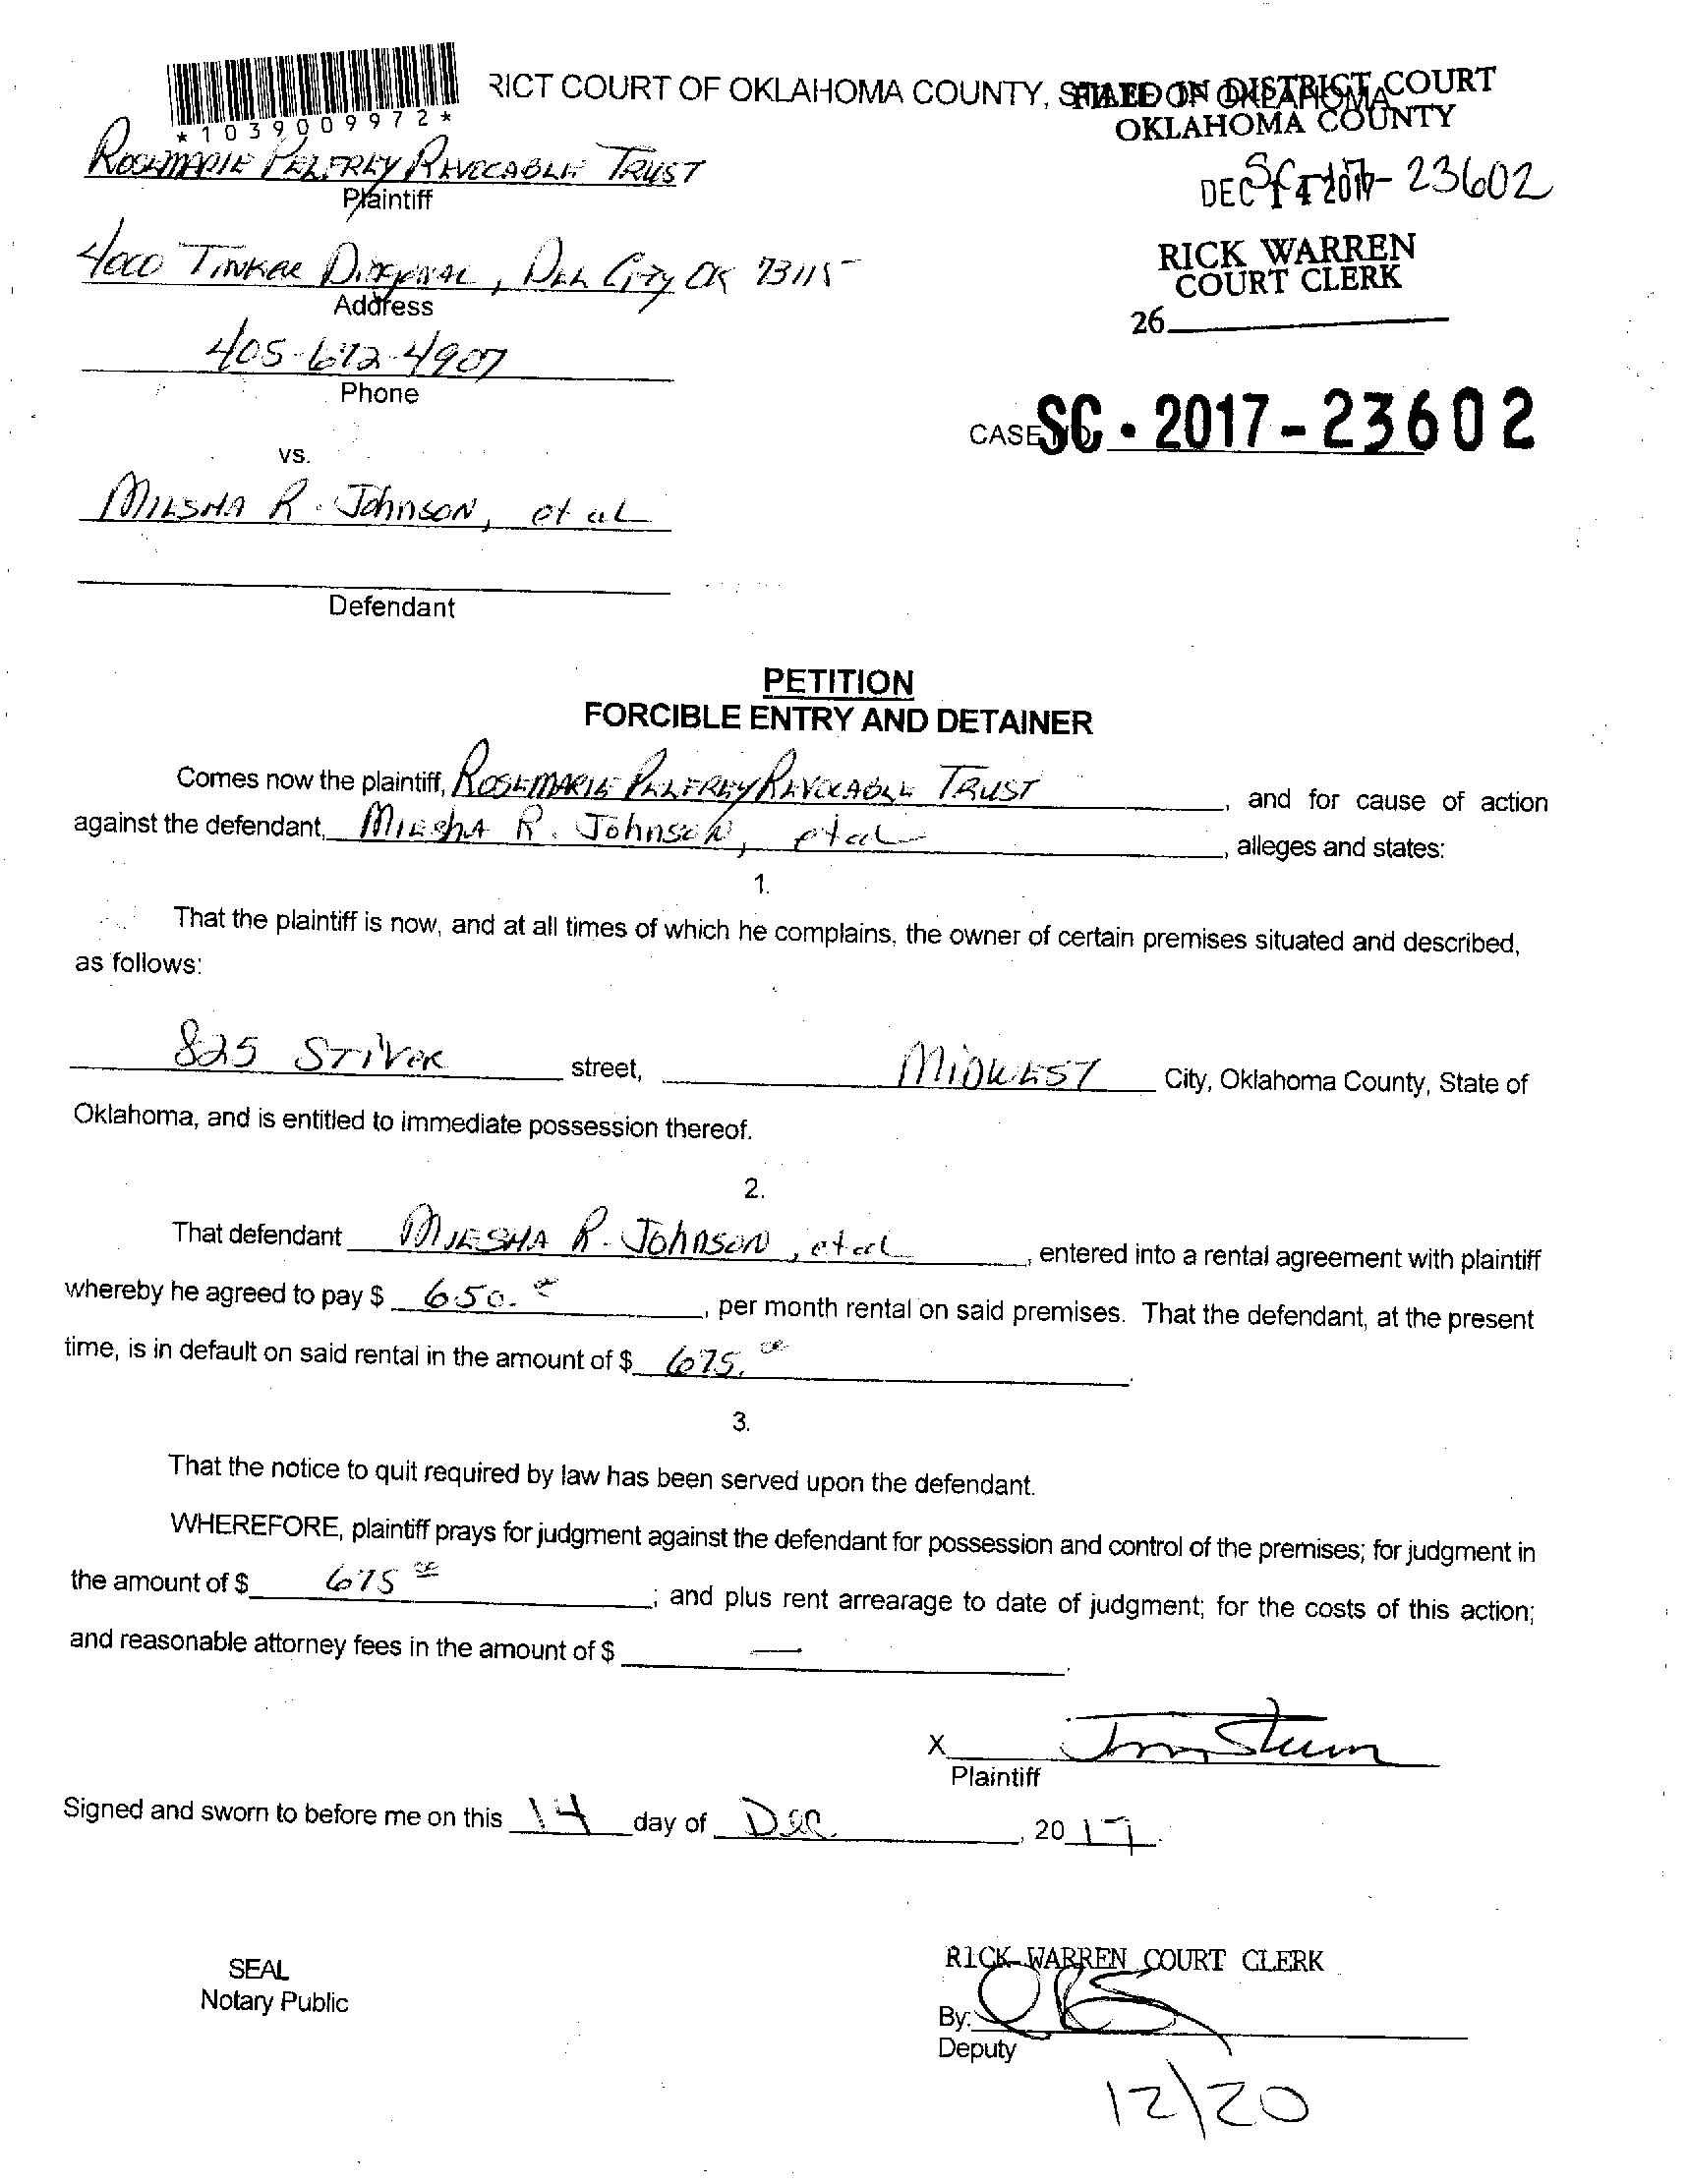 RICT COURT OF OKLAHOMA COUNTY, STATE OF OKLAHOMA
FILED IN DISTRICT COURT
OKLAHOMA COUNTY
*1039009972*
ROSEMARIE PELFREY REVOCABLE TRUST
Plaintiff
DEC 14 2017
SC-17-23602
4000 TINKER DIAGONAL, DEL CITY OK 73115
Address
RICK WARREN
COURT CLERK
26
405-672-4907
Phone
CASE NO. SC-2017-23602
vs.
MIESHA R. JOHNSON, et al
Defendant
PETITION
FORCIBLE ENTRY AND DETAINER
Comes now the plaintiff, ROSEMARIE PELFREY REVOCABLE TRUST, and for cause of action
against the defendant, MIESHA R. JOHNSON, et al, alleges and states:
1.
That the plaintiff is now, and at all times of which he complains, the owner of certain premises situated and described,
as follows:
825 STIVER street, MIDWEST City, Oklahoma County, State of
Oklahoma, and is entitled to immediate possession thereof.
2.
That defendant MIESHA R. JOHNSON, et al, entered into a rental agreement with plaintiff
whereby he agreed to pay $ 650.00, per month rental on said premises. That the defendant, at the present
time, is in default on said rental in the amount of $ 675.00.
3.
That the notice to quit required by law has been served upon the defendant.
WHEREFORE, plaintiff prays for judgment against the defendant for possession and control of the premises; for judgment in
the amount of $ 675 00; and plus rent arrearage to date of judgment; for the costs of this action;
and reasonable attorney fees in the amount of $ —.
X
Plaintiff
Signed and sworn to before me on this 14 day of Dec., 2017.
SEAL
Notary Public
RICK WARREN COURT CLERK
By:
Deputy
12/20